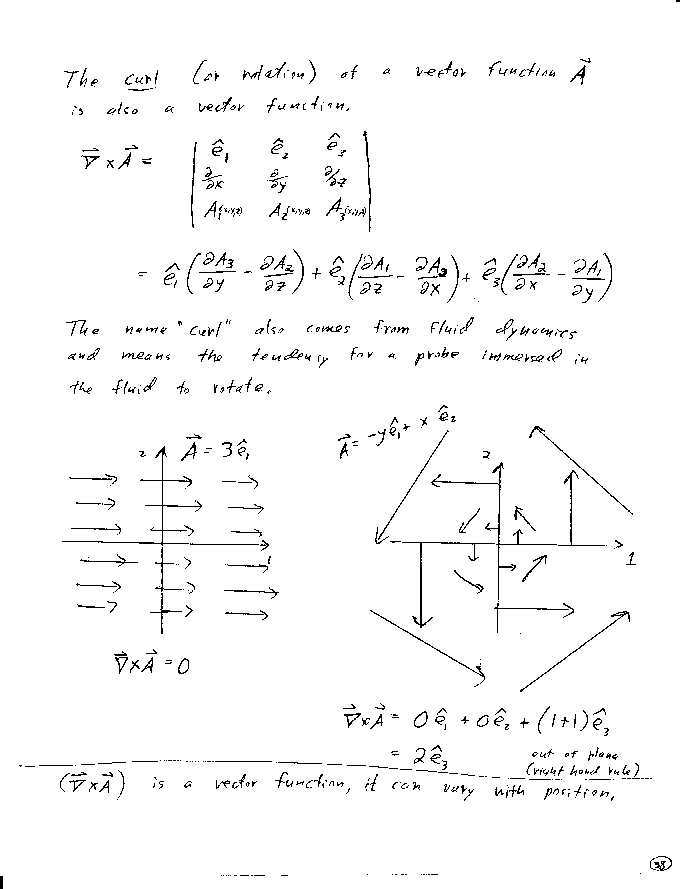 The curl (or rotation) of a vector function A⃗
is also a vector function.
∇⃗ x A⃗ = | ê₁ ê₂ ê₃ |
| ∂/∂x ∂/∂y ∂/∂z |
| A₁(x,y,z) A₂(x,y,z) A₃(x,y,z) |
= ê₁(∂A₃/∂y - ∂A₂/∂z) + ê₂(∂A₁/∂z - ∂A₃/∂x) + ê₃(∂A₂/∂x - ∂A₁/∂y)
The name "curl" also comes from fluid dynamics
and means the tendency for a probe immersed in
the fluid to rotate.
2 A⃗ = 3ê₁
1
∇⃗xA⃗ = 0
A⃗ = -yê₁ + xê₂
2
1
∇⃗xA⃗ = 0ê₁ + 0ê₂ + (1+1)ê₃
= 2ê₃ out of plane
(right hand rule)
(∇⃗xA⃗) is a vector function, it can vary with position.
38